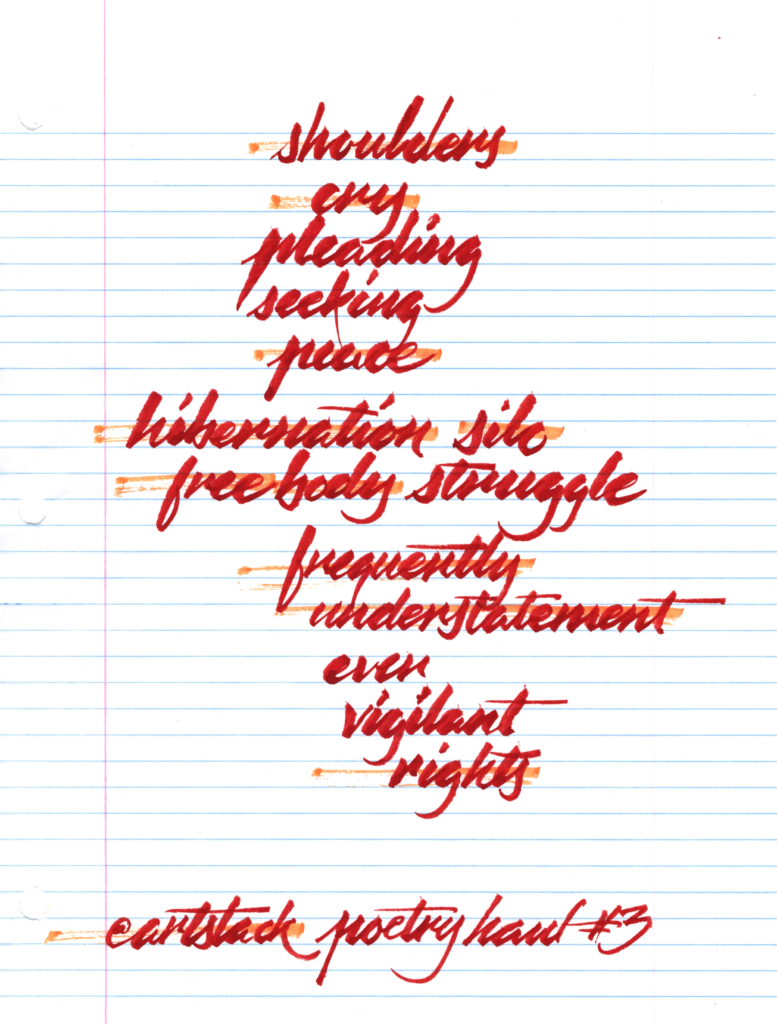 shoulders
cry
pleading
seeking
peace
hibernation silo
free body struggle
frequently
understatement
even
vigilant
rights
@artstack poetry haul #3